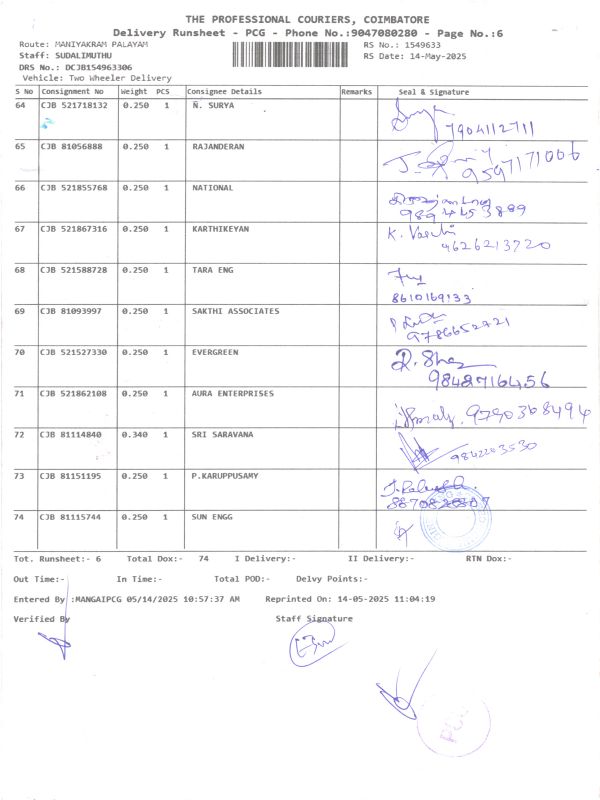 THE PROFESSIONAL COURIERS, COIMBATORE
Delivery Runsheet - PCG - Phone No.:9047080280 - Page No.:6
Route: MANIYAKRAM PALAYAM RS No.: 1549633
Staff: SUDALIMUTHU RS Date: 14-May-2025
DRS No.: DCJB154963306
Vehicle: Two Wheeler Delivery
S No Consignment No Weight PCS Consignee Details Remarks Seal & Signature
64 CJB 521718132 0.250 1 N. SURYA
7904112711
65 CJB 81056888 0.250 1 RAJANDERAN
9597171006
66 CJB 521855768 0.250 1 NATIONAL
9894453889
67 CJB 521867316 0.250 1 KARTHIKEYAN K.
9626213720
68 CJB 521588728 0.250 1 TARA ENG
8610169133
69 CJB 81093997 0.250 1 SAKTHI ASSOCIATES
9786652721
70 CJB 521527330 0.250 1 EVERGREEN
9848716456
71 CJB 521862108 0.250 1 AURA ENTERPRISES 9790368494
72 CJB 81114840 0.340 1 SRI SARAVANA
9842203530
73 CJB 81151195 0.250 1 P.KARUPPUSAMY
74 CJB 81115744 0.250 1 SUN ENGG
Tot. Runsheet:- 6 Total Dox:- 74 I Delivery:- II Delivery:- RTN Dox:-
Out Time:- In Time:- Total POD:- Delvy Points:-
Entered By :MANGAIPCG 05/14/2025 10:57:37 AM Reprinted On: 14-05-2025 11:04:19
Verified By Staff Signature
PCG